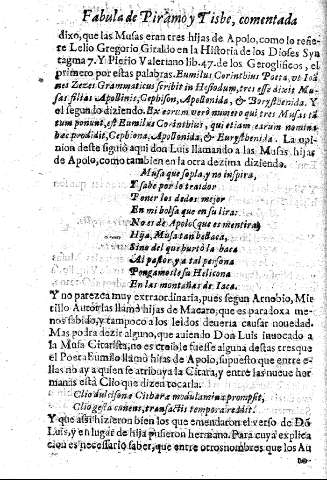 Fabula de Piramo y Tisbe, comentada
dixo, que las Musas eran tres hijas de Apolo, como lo refie
re Lelio Gregorio Giraldo en la Historia de los Dioses Syn
tagma 7. Y Pierio Valeriano lib. 47. de los Geroglificos, el
primero por estas palabras. Eumilus Corinthius Poeta, vt Ioã
nes Zezes Grammaticus scribit in Hesiodum, tres esse dixit Mu
sas filias Apollinis, Cephison, Apollonida, & Borysthenida. Y
el segundo diziendo. Ex eorum verò numero qui tres Musas tã
tum ponunt, est Eumilus Corinthius, qui etiam earum nomina
hæc prodidit, Cephiona, Apollonida, & Eurysthenida. La opi-
nion deste siguiò aqui don Luis llamando a las Musas hijas
de Apolo, como tambien en la otra dezima diziendo.
Musa que sopla, y no inspira,
Y sabe por lo traidor
Poner los dedos mejor
En mi bolsa que en su lira:
No es de Apolo (que es mentira)
Hija, Musa tan bellaca,
Sino del que hurtò la baca
Al pastor, y a tal persona
Pongamosle su Helicona
En las montañas de Iaca.
Y no parezca muy extraordinaria, pues segun Arnobio, Mir
tillo Autor las llamò hijas de Macaro, que es paradoxa me-
nos sabido, y tampoco a los leidos deueria causar nouedad.
Mas podra dezir alguno, que auiendo Don Luis inuocado a
la Musa Citarista, no es creible fuesse alguna destas tres que
el Poeta Eumilo llamò hijas de Apolo, supuesto que entre e-
llas no ay a quien se atribuya la Citara, y entre las nueue her
manas està Clio que dizen tocarla.
Clio dulcisona Citharæ modulamina prompsit,
Clio gesta canens, transactis tempora reddit.
Y que assi hizieron bien los que emendaron el verso de Dõ
Luis, y en lugar de hija pusieron hermana. Para cuya explica
cion es necessario saber, que entre otros nombres que los Au